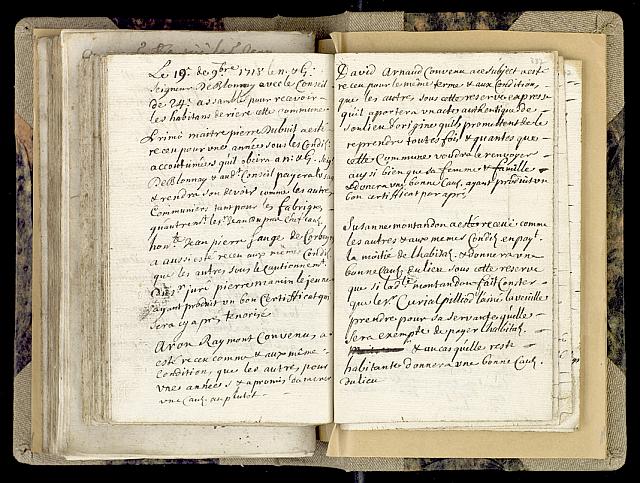 Le 19e. de 9bre 1718 le n. & G.
Seigneur De Blonnay avec le Conseil
de 24. assamblé pour recevoir
les habitans de riere cette commune
Primo maitre pierre Dubuit a esté
receu pour une année sous les Condit.
accoutumées quil obeira a n. & G.
De Blonnay & aud. Conseil payera
& rendra son devoir comme les autres
Communiers tant pour les fabriques
hon. Jean pierre fauge de
a aussi esté receu aux mêmes Condit.
que les autres sous le Cautionnement
Du Sr. juré pierre mamin le jeune
ayant produit un bon Certificat qui
sera cy apres tenorisé
Aron Raymont Convenus, a
esté receu comme & aux même
Condition, que les autres pour
une années & a promis
une Cauh. au plutôt
David Arnaud Convenu ace Subject a esté
receu pour le même terme & aux Condition,
que les autres sous cette reserve expresse
quil aportera un acte authentique de
son lieu d'origine quils promettent de le
reprendre toutes fois & quantes que
cette Commune voudra le renvoyer
aussi bien que sa femme & famille
& donnera une bonne Cauh. ayant produit un
bon certificat par apré
Susanne montandon a esté receüe comme
les autres & aux memes Condit. en payt.
la moitié de Lhabitat. & donnera une
bonne Cauh. du lieu sous cette reserve
que si lad. montandon fait Conster
que le Sr. Curial pilliod l'ainé la veuille
prendre pour sa servante quelle
sera exempte de payer Lhabitat.
& au cas quelle reste
habitante donnera une bonne Cauh.
du lieu